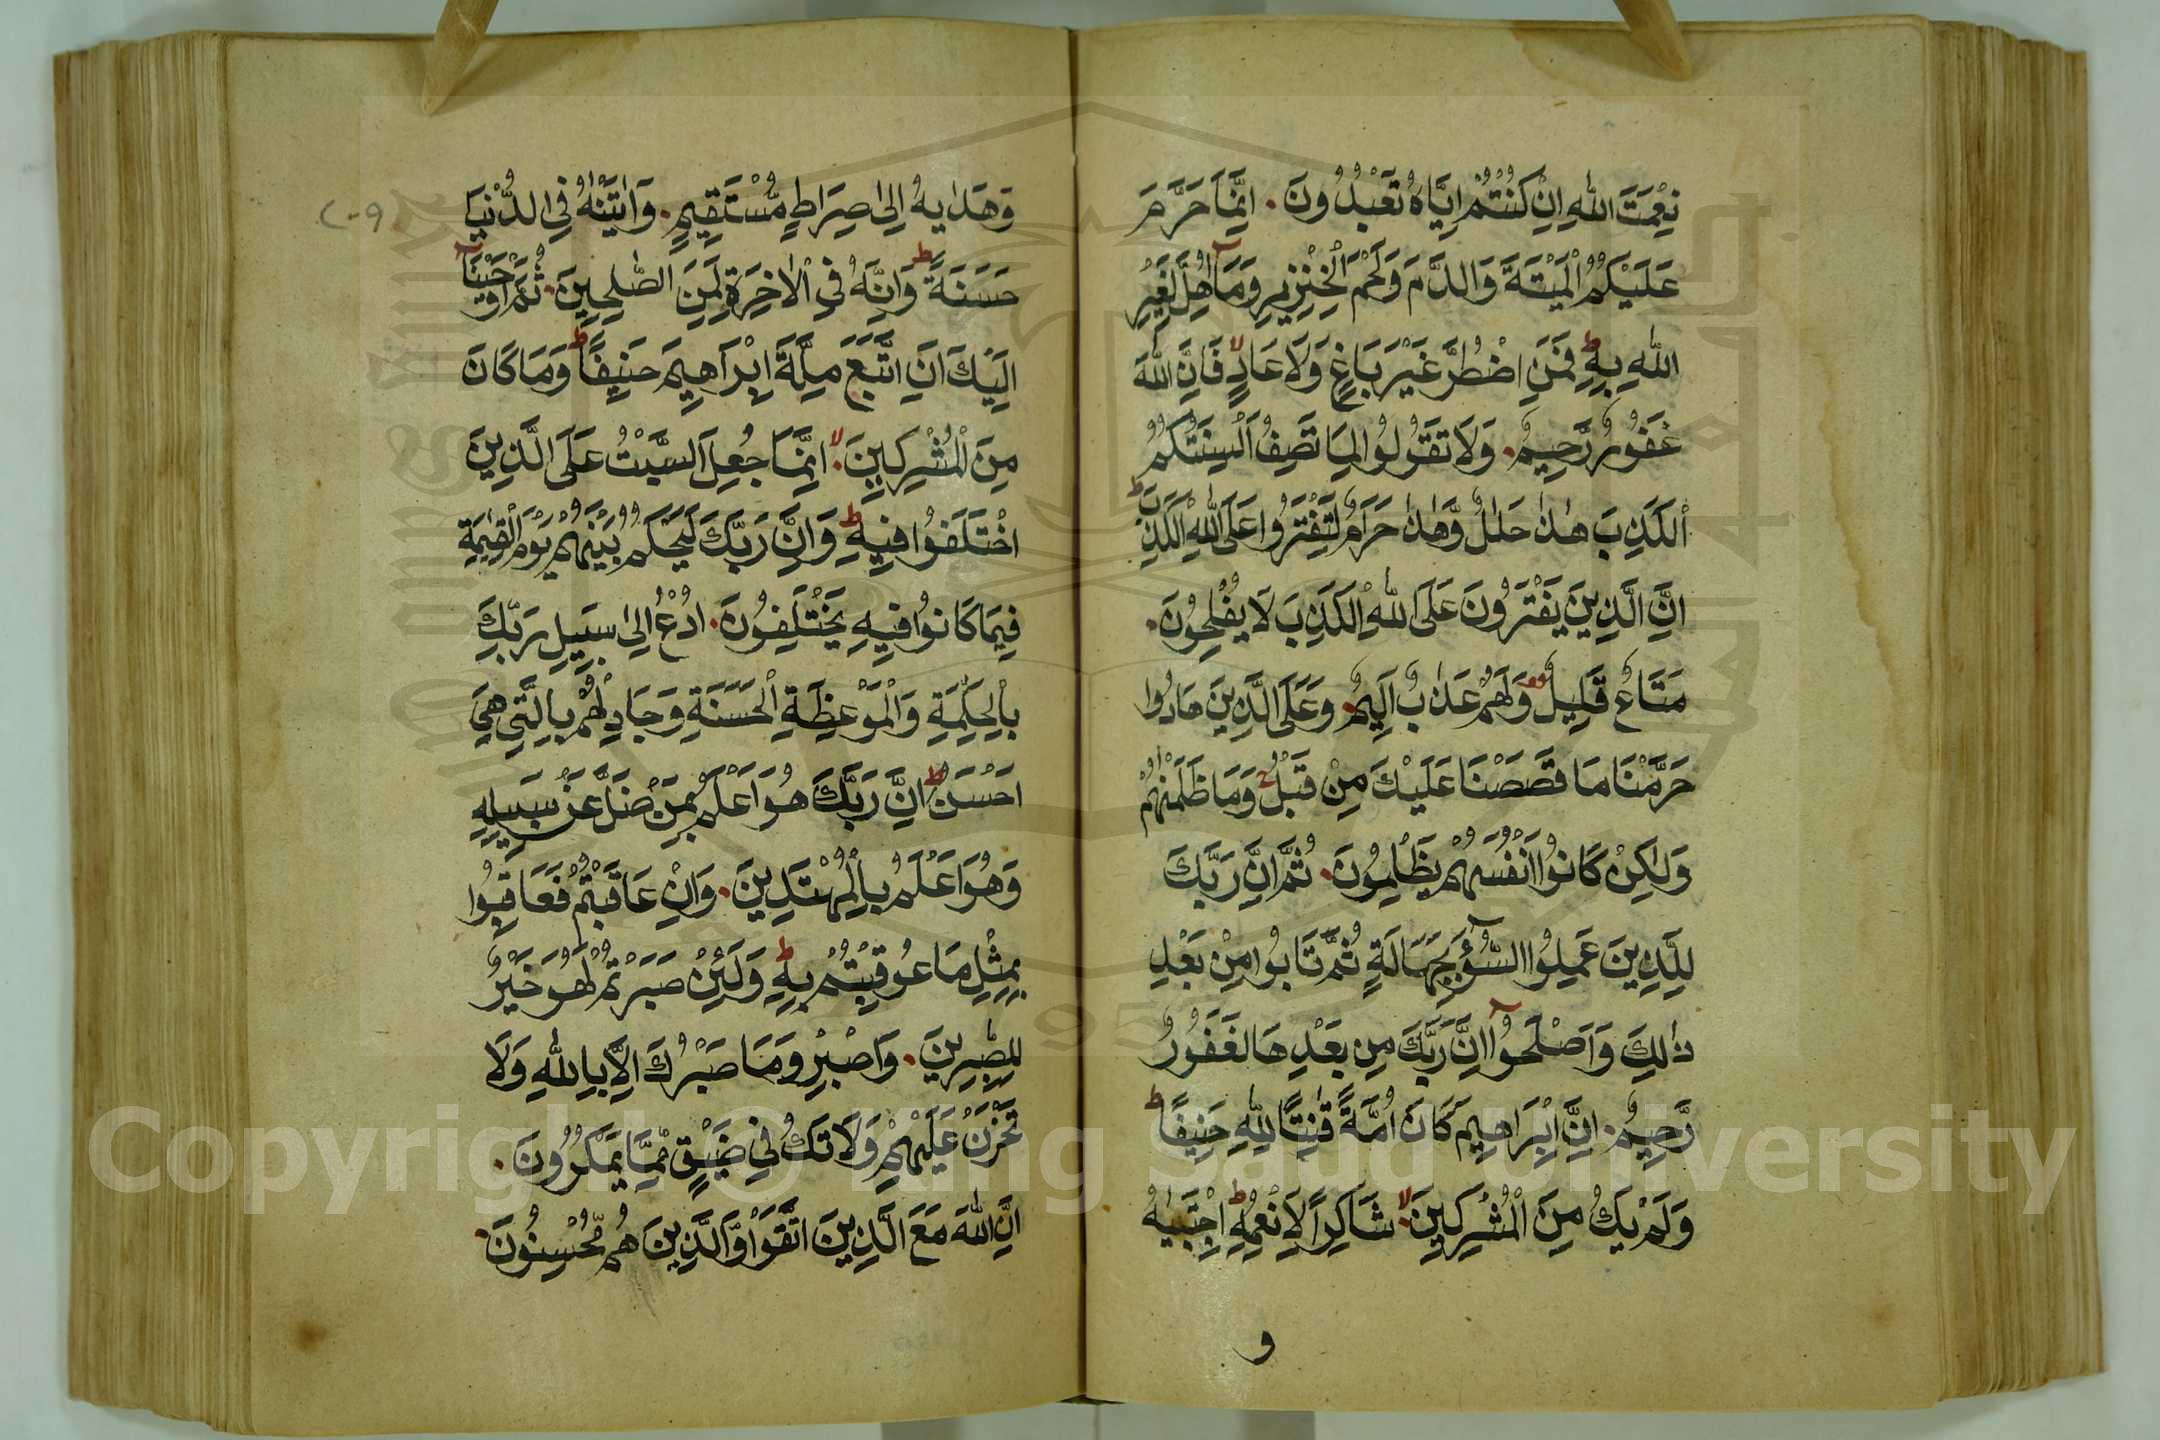 نِعْمَتَ اللّٰهِ اِنْ كُنْتُمْ اِيَّاهُ تَعْبُدُونَ ۰ اِنَّمَا حَرَّمَ
عَلَيْكُمُ الْمَيْتَةَ وَالدَّمَ وَلَحْمَ الْخِنْزِيرِ وَمَآ اُهِلَّ لِغَيْرِ
اللّٰهِ بِهِ ط فَمَنِ اضْطُرَّ غَيْرَ بَاغٍ وَلَا عَادٍ لا فَاِنَّ اللّٰهَ
غَفُورٌ رَّحِيمٌ ۰ وَلَا تَقُولُوا لِمَا تَصِفُ اَلْسِنَتُكُمُ
الْكَذِبَ هٰذَا حَلٰلٌ وَّهٰذَا حَرَامٌ لِّتَفْتَرُوا عَلَى اللّٰهِ الْكَذِبَ ط
اِنَّ الَّذِينَ يَفْتَرُونَ عَلَى اللّٰهِ الْكَذِبَ لَا يُفْلِحُونَ ۰
مَتَاعٌ قَلِيلٌ وَّلَهُمْ عَذَابٌ اَلِيمٌ ۰ وَعَلَى الَّذِينَ هَادُوا
حَرَّمْنَا مَا قَصَصْنَا عَلَيْكَ مِنْ قَبْلُ ج وَمَا ظَلَمْنٰهُمْ
وَلٰكِنْ كَانُوا اَنْفُسَهُمْ يَظْلِمُونَ ۰ ثُمَّ اِنَّ رَبَّكَ
لِلَّذِينَ عَمِلُوا السُّوٓءَ بِجَهَالَةٍ ثُمَّ تَابُوا مِنْ بَعْدِ
ذٰلِكَ وَاَصْلَحُوٓا اِنَّ رَبَّكَ مِنْ بَعْدِهَا لَغَفُورٌ
رَّحِيمٌ ۰ اِنَّ اِبْرَاهِيمَ كَانَ اُمَّةً قٰنِتًا لِلّٰهِ حَنِيفًا ط
وَلَمْ يَكُ مِنَ الْمُشْرِكِينَ ۰ لا شَاكِرًا لِاَنْعُمِهِ ط اِجْتَبٰيهُ
و
وَهَدٰيهُ اِلٰى صِرَاطٍ مُّسْتَقِيمٍ ۰ وَاٰتَيْنٰهُ فِى الدُّنْيَا
حَسَنَةً ط وَاِنَّهُ فِى الْاٰخِرَةِ لَمِنَ الصّٰلِحِينَ ۰ ثُمَّ اَوْحَيْنَآ
اِلَيْكَ اَنِ اتَّبِعْ مِلَّةَ اِبْرَاهِيمَ حَنِيفًا ط وَمَا كَانَ
مِنَ الْمُشْرِكِينَ ۰ لا اِنَّمَا جُعِلَ السَّبْتُ عَلَى الَّذِينَ
اخْتَلَفُوا فِيهِ ط وَاِنَّ رَبَّكَ لَيَحْكُمُ بَيْنَهُمْ يَوْمَ الْقِيٰمَةِ
فِيمَا كَانُوا فِيهِ يَخْتَلِفُونَ ۰ اُدْعُ اِلٰى سَبِيلِ رَبِّكَ
بِالْحِكْمَةِ وَالْمَوْعِظَةِ الْحَسَنَةِ وَجَادِلْهُمْ بِالَّتِى هِيَ
اَحْسَنُ ط اِنَّ رَبَّكَ هُوَ اَعْلَمُ بِمَنْ ضَلَّ عَنْ سَبِيلِهِ
وَهُوَ اَعْلَمُ بِالْمُهْتَدِينَ ۰ وَاِنْ عَاقَبْتُمْ فَعَاقِبُوا
بِمِثْلِ مَا عُوقِبْتُمْ بِهِ ط وَلَئِنْ صَبَرْتُمْ لَهُوَ خَيْرٌ
لِلصّٰبِرِينَ ۰ وَاصْبِرْ وَمَا صَبْرُكَ اِلَّا بِاللّٰهِ وَلَا
تَحْزَنْ عَلَيْهِمْ وَلَا تَكُ فِى ضَيْقٍ مِّمَّا يَمْكُرُونَ ۰
اِنَّ اللّٰهَ مَعَ الَّذِينَ اتَّقَوْا وَّالَّذِينَ هُمْ مُّحْسِنُونَ ۰
Copyright © King Saud University